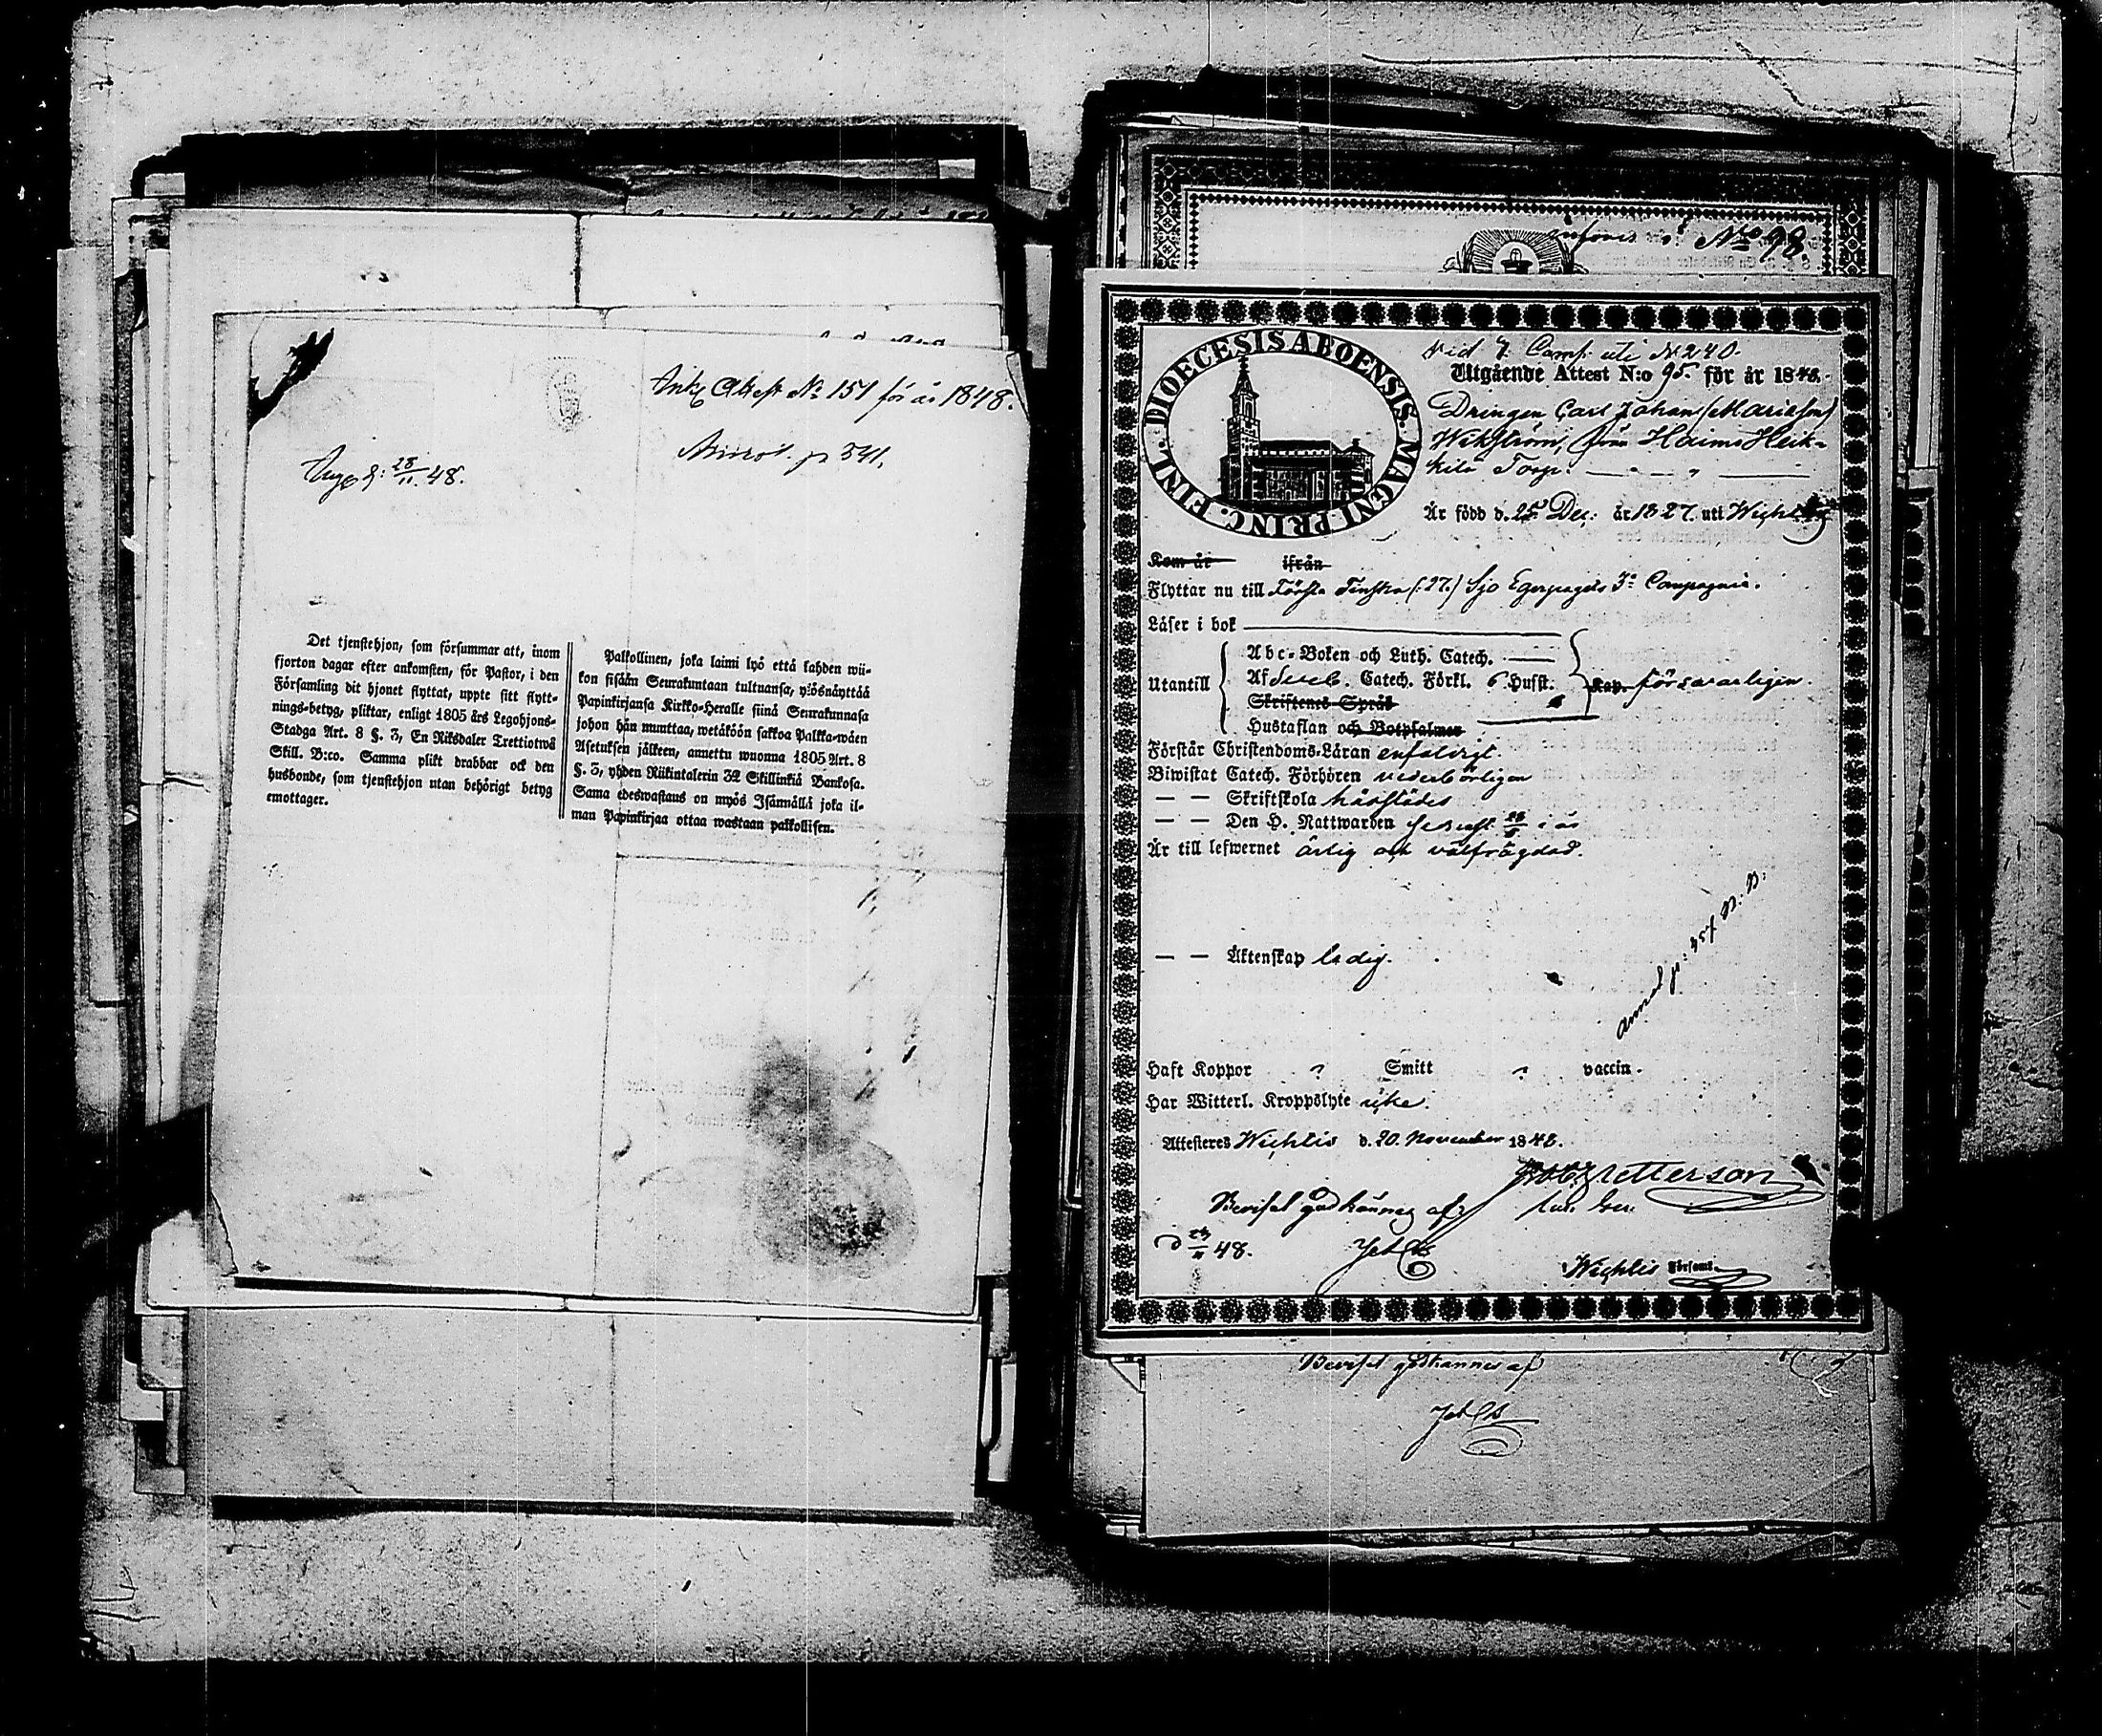 Ank. Attest No 151 för år 1848.
p 341.
28/11 48.
Det tjenstehjon, som försummar att, inom
fjorton dagar efter ankomsten, för Pastor, i den
Församling dit hjonet flyttat, uppte sitt flytt-
nings-betyg, pliktar, enligt 1805 års Legohjons-
Stadga Art. 8 §. 3, En Riksdaler Trettiotwå
Skill. B:co. Samma plikt drabbar ock den
husbonde, som tjenstehjon utan behörigt betyg
emottager.
Palkollinen, joka laimi lyö että kahden wii-
kon sisään Seurakuntaan tultuansa, ylösnäyttää
Papinkirjansa Kirkko-Heralle siinä Seurakunnasa
johon hän muuttaa, wetäköön sakkoa Palkka-wäen
Asetuksen jälkeen, annettu wuonna 1805 Art. 8
§. 3, yhden Riikintalerin 32 Skillinkiä Bankosa.
Sama edeswastaus on myös Isännällä joka il-
man Papinkirjaa ottaa wastaan palkollisen.
No 98.
DIOECESIS ABOENSIS. MAGNI PRINC. FINL.
Comp. uti No 240.
Utgående Attest N:o 95. för år 1848.
Drengen Carl Johan (Mariæson)
Wikström, från Haimo Heik-
kilä Torp.
Är född d. 25 Dec: år 1827. uti Wichtis
Kom år ifrån
Flyttar nu till Första Finska (:27.) Sjö Eqvipagets 3e Compagnie.
Läser i bok
Utantill
Abc-Boken och Luth. Catech.
Af Sveb. Catech. Förkl. 6 Hufst.
Kap. försvarligen.
Skriftenes Språk
Hustaflan och Botpsalmer
Förstår Christendoms-Läran enfaldigt.
Biwistat Catech. Förhören vederbörligen
— — Skriftskola härstädes
— — Den H. Nattwarden senast i år
Är till lefwernet ärlig och välfrägdad.
— — Äktenskap ledig.
p: 357
Haft Koppor Smitt vaccin.
Har Witterl. Kroppslyte icke.
Attesteres Wichtis d. 20. November 1848.
Petterson
Beviset godkännes af
48.
Wichtis Församl.
Beviset godkännes af